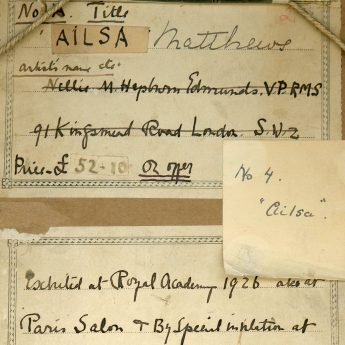 No. A. Title
AILSA Matthews
artist's name etc.
Nellie M. Hepburn Edmunds. V.P.R.M.S
91 Kingsmead Road London. S.W.2
Price - £ 52-10 or offer
No 4.
"Ailsa".
Exhibited at Royal Academy 1926 also at
Paris Salon & By Special invitation at